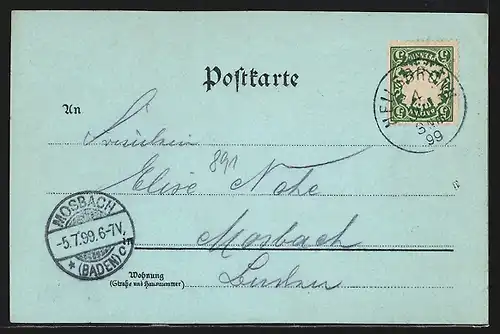 Postkarte
An
Fräulein
891
Elise Nohe
in Mosbach
Baden
Wohnung
(Straße und Hausnummer)
MOSBACH
-5.7.99.6-7V.
* (BADEN) c
BAYERN
99